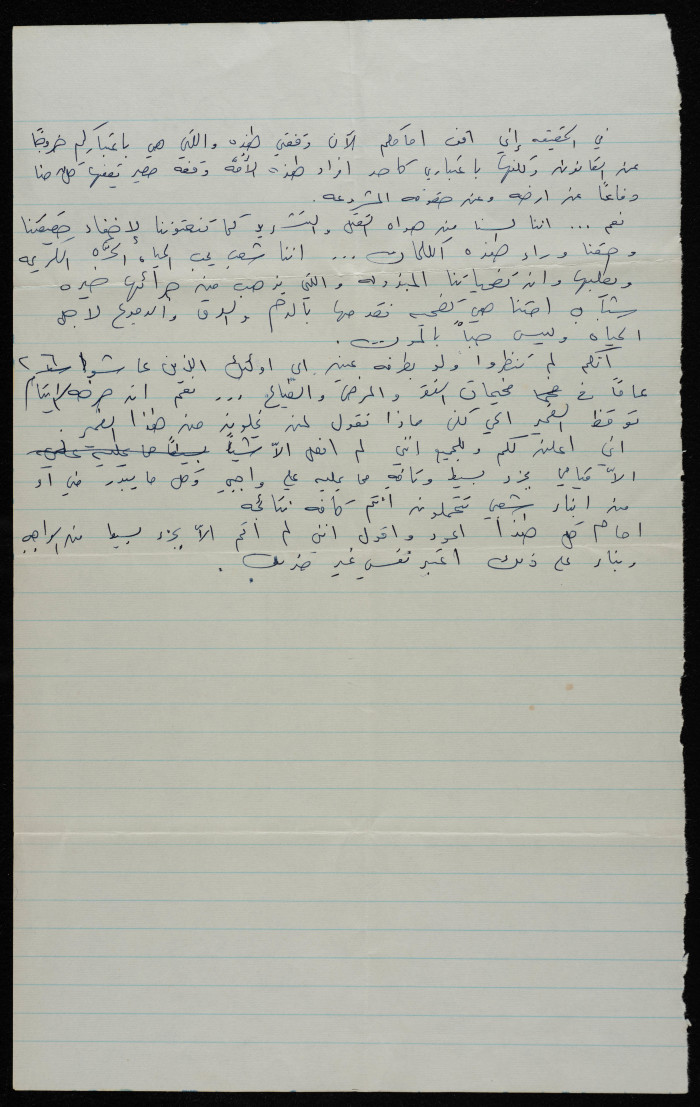 في الحقيقه إني اقف امامكم الآن وقفتي هذه واللتي هي باعتباركم خروجًا
عن القانون ولكنها باعتباري كأحد افراد هذه الأمّه وقفة مصير يقفها كل منا
دفاعًا عن ارضه وعن حقوقه المشروعه.
نعم ... اننا لسنا من هواه القتل والتشريد كما تنعتوننا لإخفاء حقيقتنا
وحقنا وراء هذه الكلمات ... اننا شعب يحب الحياه الحرّه الكريمه
ويطلبها وان تضحياتنا المبذوله واللتي يذهب من جرائها خيره
شباب امتنا هي تضحيه نقدمها بالدم والعرق والدموع لاجل
الحياه وليس حبًا بالموت.
انكم لم تنظروا ولو بطرفه عين الى اولئك الذين عاشوا ٢٦
عامًا في مخيمات الفقر والمرض والضياع ... نعم ان صرخه الايتام
توقظ الضمير الحي لكن ماذا نقول لمن يخلون من هذا الضمير.
اني اعلن لكم وللجميع انني لم افعل الاّ شيئًا بسيطًا مما يمليه علي
الاّ قيامي بجزء بسيط وتافه مما يمليه علي واجبي وكل ما يبدر مني او
من ابناء شعبي تتحملون انتم كافه نتائجه
امام كل هذا اعود واقول انني لم اقم الاّ بجزء بسيط من الواجب
وبناء على ذلك اعتبر نفسي غير مذنب.